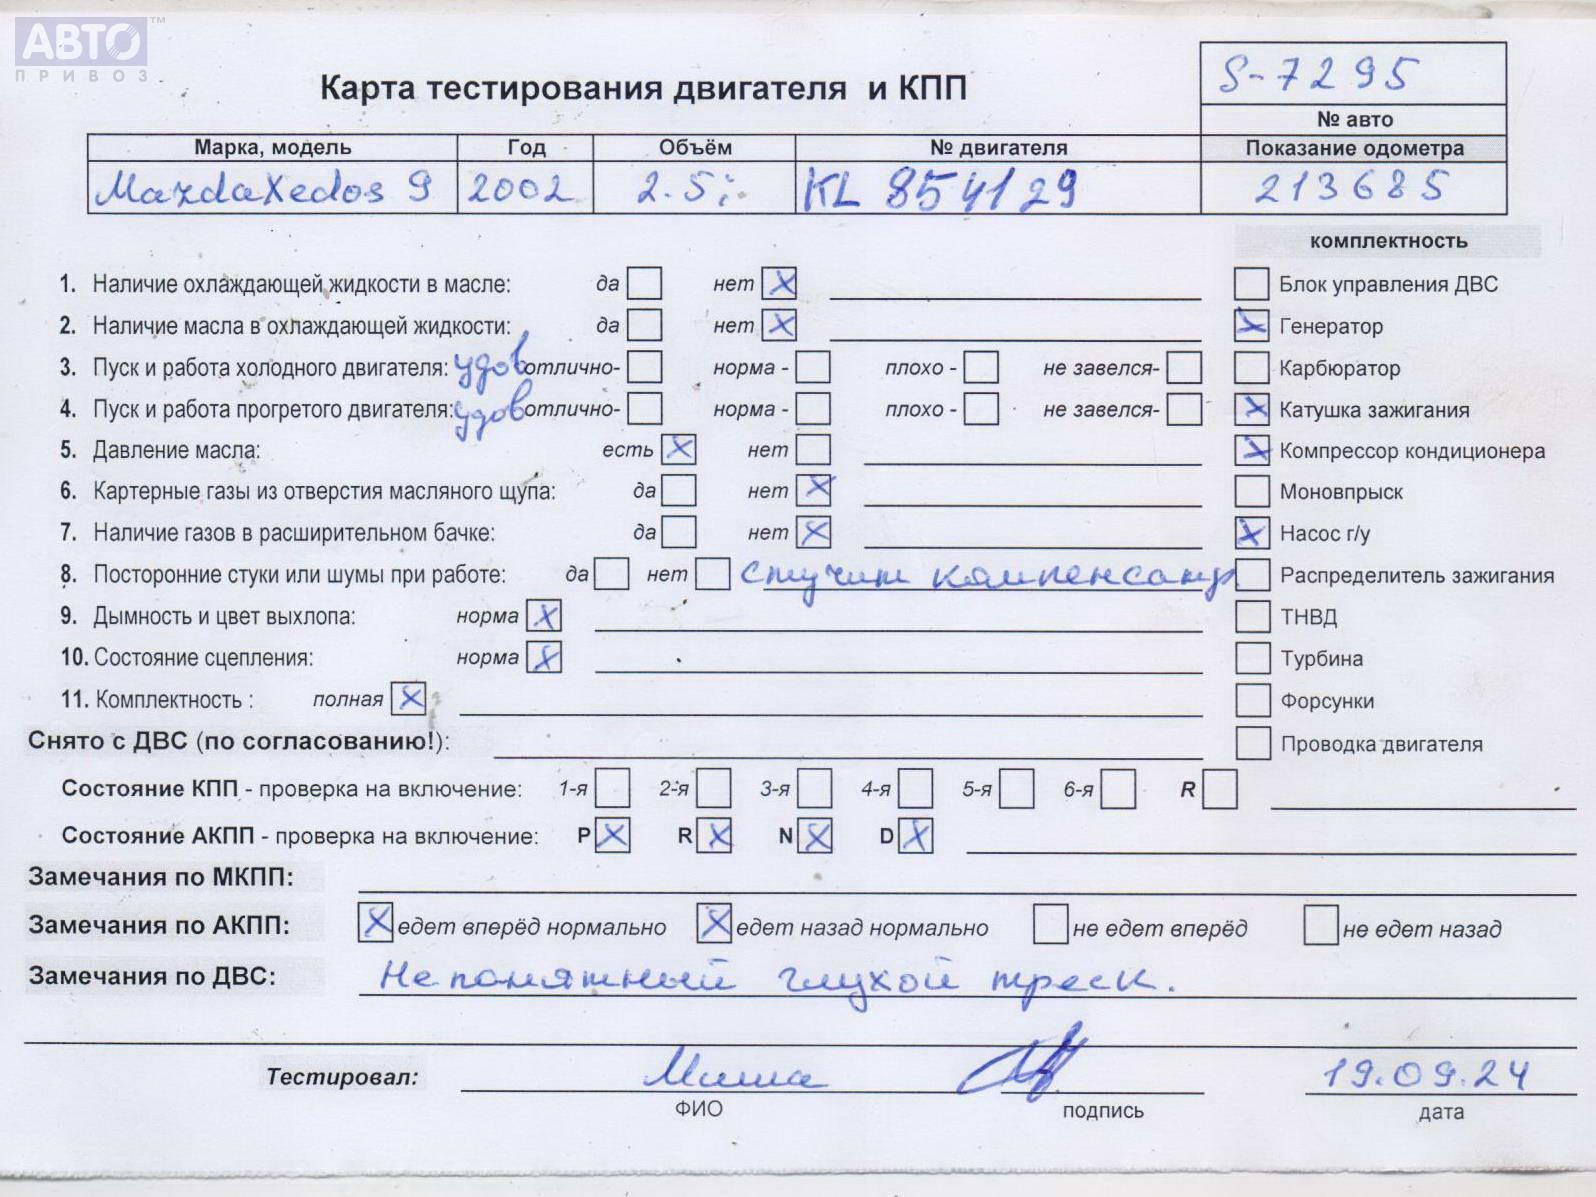 АВТО™
ПРИВОЗ
Карта тестирования двигателя и КПП
S-7295
№ авто
Марка, модель Год Объём № двигателя Показание одометра
Mazda Xedos 9 2002 2.5i KL 854129 213685
комплектность
1. Наличие охлаждающей жидкости в масле: да нет X Блок управления ДВС
2. Наличие масла в охлаждающей жидкости: да нет X X Генератор
3. Пуск и работа холодного двигателя: удов отлично- норма - плохо - не завелся- Карбюратор
4. Пуск и работа прогретого двигателя: удов отлично- норма - плохо - не завелся- X Катушка зажигания
5. Давление масла: есть X нет X Компрессор кондиционера
6. Картерные газы из отверстия масляного щупа: да нет X Моновпрыск
7. Наличие газов в расширительном бачке: да нет X X Насос г/у
8. Посторонние стуки или шумы при работе: да нет стучит компенсатр Распределитель зажигания
9. Дымность и цвет выхлопа: норма X ТНВД
10. Состояние сцепления: норма X Турбина
11. Комплектность : полная X Форсунки
Снято с ДВС (по согласованию!): Проводка двигателя
Состояние КПП - проверка на включение: 1-я 2-я 3-я 4-я 5-я 6-я R
Состояние АКПП - проверка на включение: P X R X N X D X
Замечания по МКПП:
Замечания по АКПП: X едет вперёд нормально X едет назад нормально не едет вперёд не едет назад
Замечания по ДВС: Непонятный глухой треск.
Тестировал: Миша 19.09.24
ФИО подпись дата